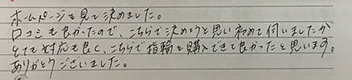 ホームページを見て決めました。
口コミも良かったので、こちらで決めようと思い初めて伺いましたが
とても対応も良く、こちらで指輪を購入できて良かったと思います。
ありがとうございました。